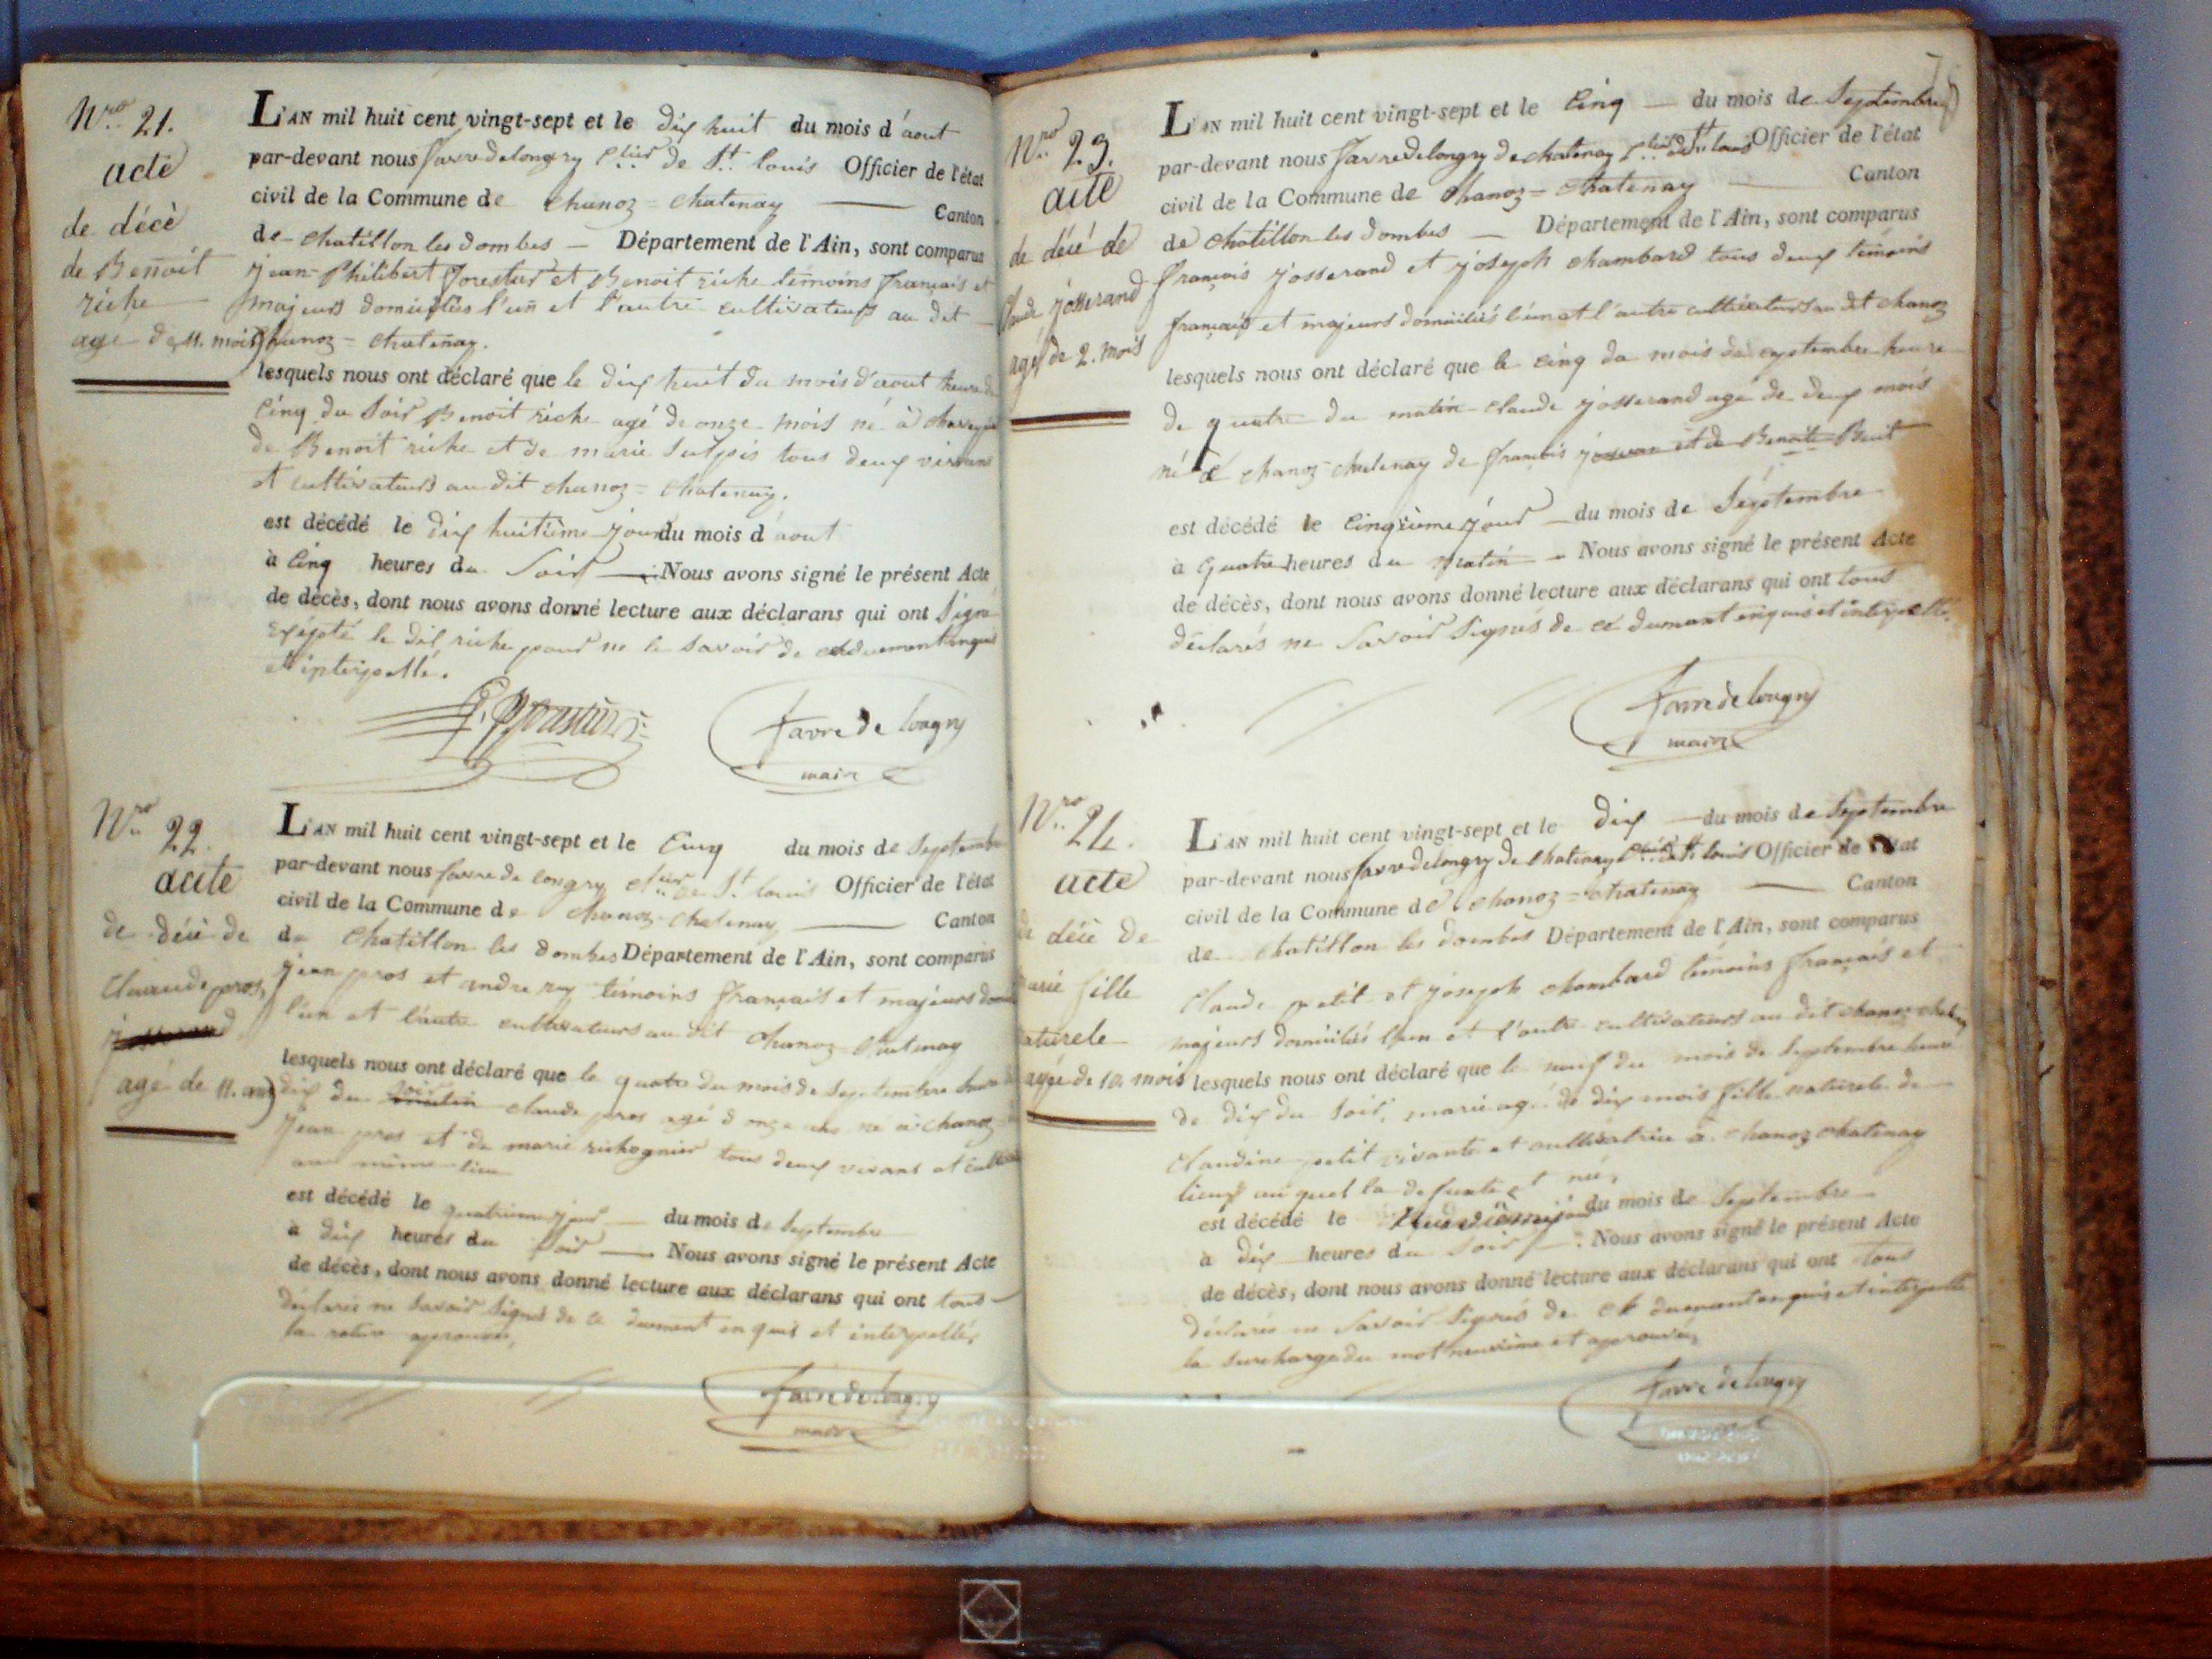 Nro 21.
acte
de décè
de Benoit
riche
agé de 11. mois
L'AN mil huit cent vingt-sept et le dix huit du mois d'aout
par-devant nous favre de longry de St. louis Officier de l'état
civil de la Commune de chanoz = chatenay Canton
de chatillon les dombes Département de l'Ain, sont comparus
jean Philibert forestier et Benoit riche témoins français et
majeurs domiciliés l'un et l'autre cultivateurs au dit
chanoz = chatenay.
lesquels nous ont déclaré que le dix huit du mois d'aout heure de
cinq du soir Benoit riche agé de onze mois né à
de Benoit riche et de marie tous deux vivans
et cultivateurs au dit chanoz = chatenay.
est décédé le dix huitième jour du mois d'aout
à cinq heures du soir Nous avons signé le présent Acte
de décès, dont nous avons donné lecture aux déclarans qui ont signé
excepté le dit riche pour ne le savoir de ce duement enquis
et interpellé.
favre de longry
maire
Nro 22.
acte
de décè de
Claude pros,
agé de 11. ans
L'AN mil huit cent vingt-sept et le cinq du mois de septembre
par-devant nous favre de longry de St. louis Officier de l'état
civil de la Commune de chanoz chatenay Canton
de chatillon les dombes Département de l'Ain, sont comparus
jean pros et andre rey témoins français et majeurs
l'un et l'autre cultivateurs au dit chanoz chatenay
lesquels nous ont déclaré que le quatre du mois de septembre heure de
dix du soir claude pros agé d'onze ans né à chanoz
jean pros et de marie tous deux vivant et
au même lieu
est décédé le quatrieme jour du mois de septembre
à dix heures du soir Nous avons signé le présent Acte
de décès, dont nous avons donné lecture aux déclarans qui ont tous
déclarés ne savoir signé de ce duement enquis et interpellés,
la rature aprouvée,
favre de longry
maire
Nro 23.
acte
de décé de
Claude josserand
agé de 2. mois
L'AN mil huit cent vingt-sept et le cinq du mois de septembre
par-devant nous favre de longry de chatenay de St. louis Officier de l'état
civil de la Commune de chanoz = chatenay Canton
de chatillon les dombes Département de l'Ain, sont comparus
françois josserand et joseph chambard tous deux témoins
français et majeurs domiciliés l'un et l'autre cultivateurs au dit chanoz
lesquels nous ont déclaré que le cinq du mois de septembre heure
de quatre du matin claude josserand agé de deux mois
né à chanoz chatenay de françois et de Benoite
est décédé le cinquième jour du mois de septembre
à quatre heures du matin Nous avons signé le présent Acte
de décès, dont nous avons donné lecture aux déclarans qui ont tous
déclarés ne savoir signés de ce dument enquis et interpellé.
favre de longry
maire
Nro 24.
acte
de décé de
marie fille
naturele
agée de 10. mois
L'AN mil huit cent vingt-sept et le dix du mois de septembre
par-devant nous favre de longry de chatenay de St. louis Officier de l'état
civil de la Commune de chanoz = chatenay Canton
de chatillon les dombes Département de l'Ain, sont comparus
Claude petit et joseph chambard témoins français et
majeurs domiciliés l'un et l'autre cultivateurs au dit chanoz chatenay
lesquels nous ont déclaré que le neuf du mois de septembre heure
de dix du soir, marie agé de dix mois fille naturele de
Claudine petit vivante et cultivatrice à chanoz chatenay
lieux auquel la defunte est née,
est décédé le neuvième jour du mois de septembre
à dix heures du soir Nous avons signé le présent Acte
de décès, dont nous avons donné lecture aux déclarans qui ont tous
déclarés ne savoir signés de ce duement enquis et interpellé
la surcharge du mot neuvième et aprouvée,
favre de longry